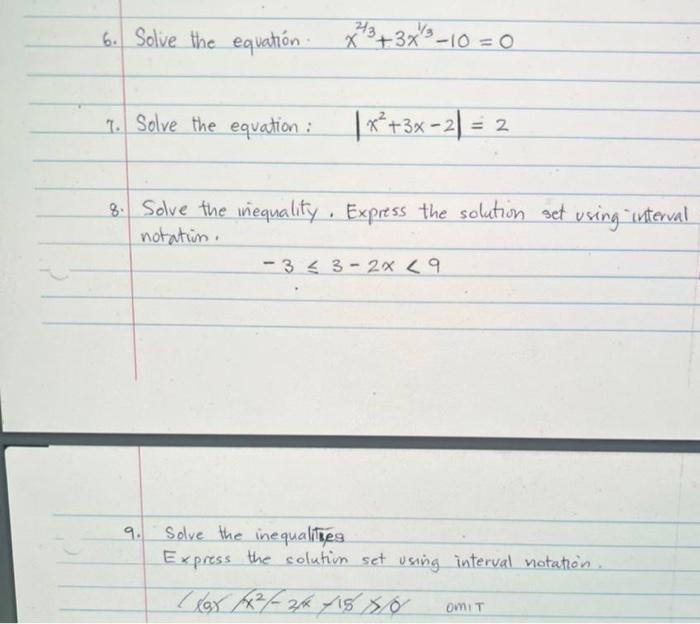 6. Solve the equation. x^2/3 + 3x^1/3 - 10 = 0
7. Solve the equation: |x² + 3x - 2| = 2
8. Solve the inequality. Express the solution set using interval
notation.
- 3 ≤ 3 - 2x < 9
9. Solve the inequalities
Express the solution set using interval notation.
x² - 2x - 15 > 0 OMIT